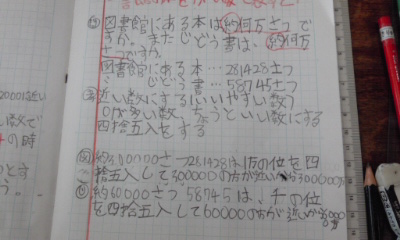 図書館にある本は約何万さつで
すか。またじどう書は、約何万
さつですか。
図書館にある本…281428さつ
じどう書…58745さつ
近い数にする(いいやすい数)
0が多い数、ちょうどいい数にする
四捨五入をする
約300000さつ 281428は、1万の位を四
捨五入して300000の方が近いから300000
約60000さつ 58745は、千の位
を四捨五入して60000の方が近いから60000
の時